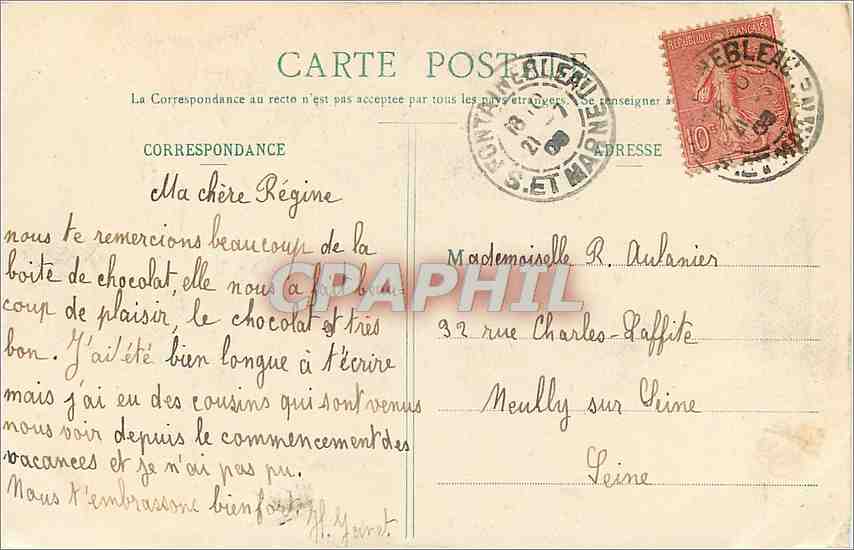 CARTE POSTALE
La Correspondance au recto n'est pas acceptée par tous les pays étrangers. (Se renseigner à
CORRESPONDANCE
Ma chère Régine
nous te remercions beaucoup de la
boite de chocolat, elle nous a fait beau-
coup de plaisir, le chocolat est très
bon. J'ai été bien longue à t'écrire
mais j'ai eu des cousins qui sont venus
nous voir depuis le commencement des
vacances et je n'ai pas pu.
Nous t'embrassons bien fort.
H.
ADRESSE
Mademoiselle R. Aulanier
92 rue Charles-Laffite
Neuilly sur Seine
Seine
FONTAINEBLEAU
S. ET MARNE
18
21
REPUBLIQUE FRANÇAISE
10c
CPAPHIL